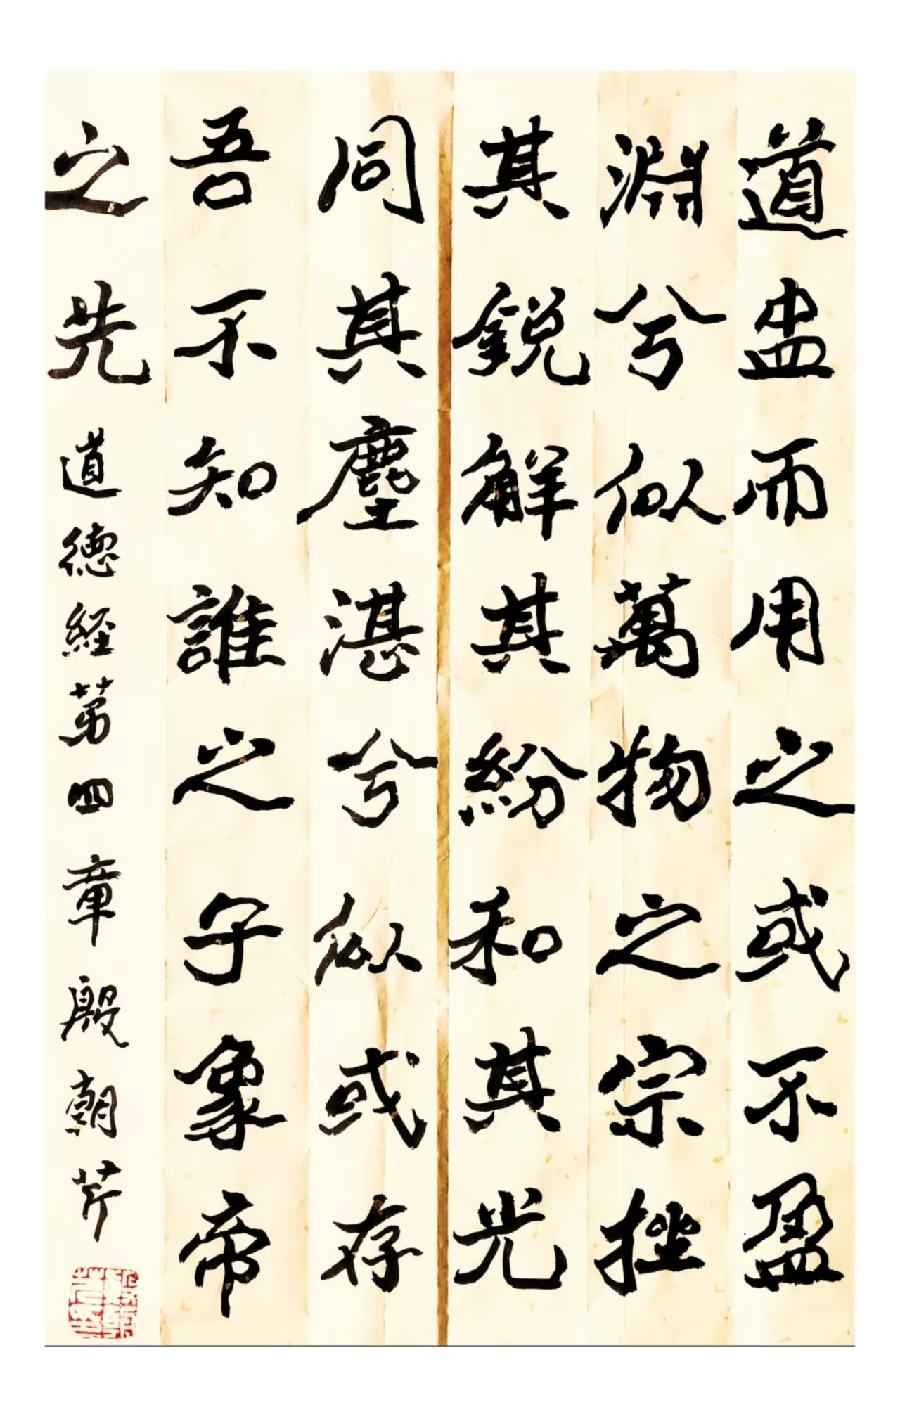 道盅而用之或不盈
淵兮似萬物之宗挫
其銳解其紛和其光
同其塵湛兮似或存
吾不知誰之子象帝
之先
道德経苐四章殷朝芹